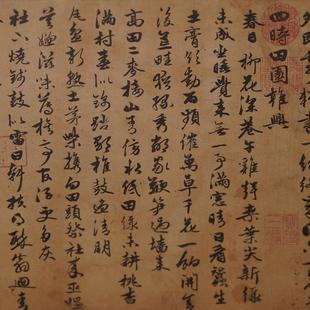 四時田園雜興
春日 柳花深巷午雞聲桑葉尖新綠
未成坐睡覺來無一事滿窓晴日看蠶生
土膏欲動雨頻催萬草千花一餉開舍
後荒畦猶綠秀鄰家鞭筍過墻來
高田二麥接山青傍水低田綠未耕桃杏
滿村春似錦踏歌椎鼓過清明
老盆初熟杜茅柴攜向田頭祭社來巫媼
莫嫌滋味薄旗亭官酒更多灰
社下燒錢鼓似雷日斜扶得醉翁回青